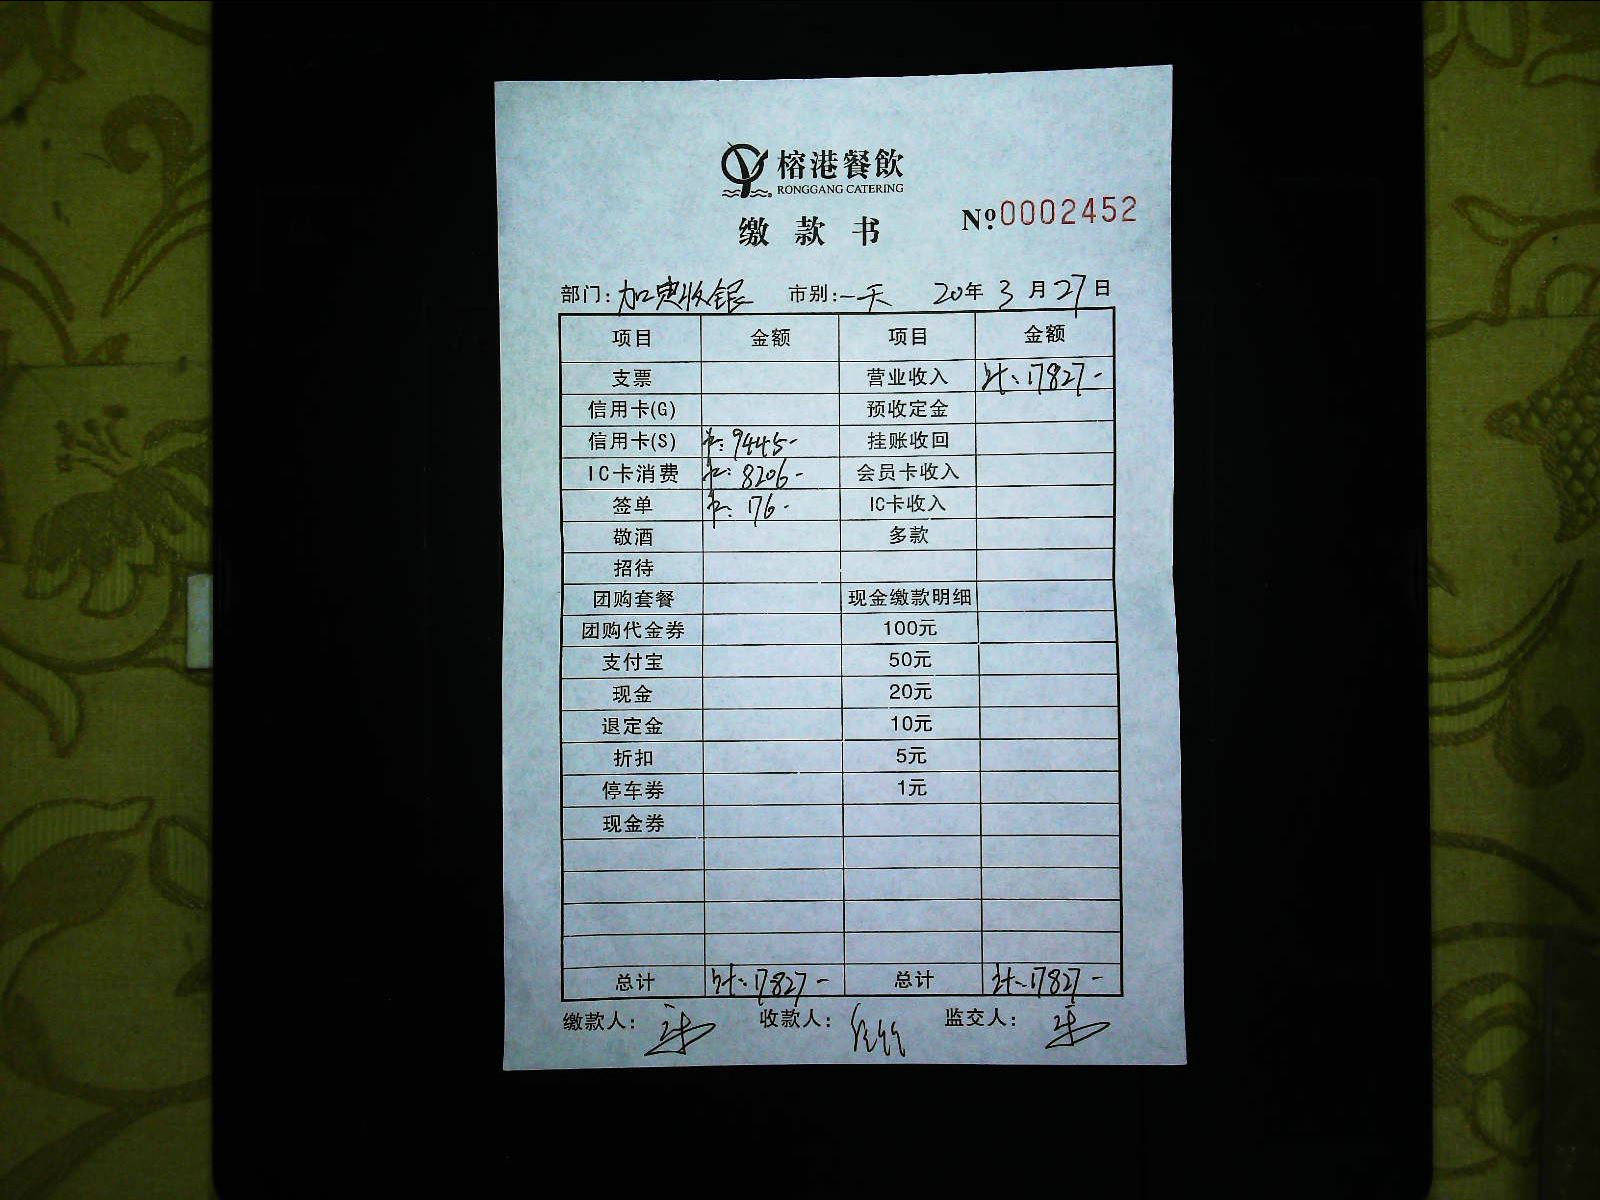 榕港餐飲
RONGGANG CATERING
缴款书
Nº:0002452
部门:加惠收银 市别:一天 20年3月27日
项目 金额 项目 金额
支票 营业收入 17827-
信用卡(G) 预收定金
信用卡(S) 9445- 挂账收回
IC卡消费 8206- 会员卡收入
签单 176- IC卡收入
敬酒 多款
招待
团购套餐 现金缴款明细
团购代金券 100元
支付宝 50元
现金 20元
退定金 10元
折扣 5元
停车券 1元
现金券
总计 17827- 总计 17827-
缴款人: 收款人: 监交人: